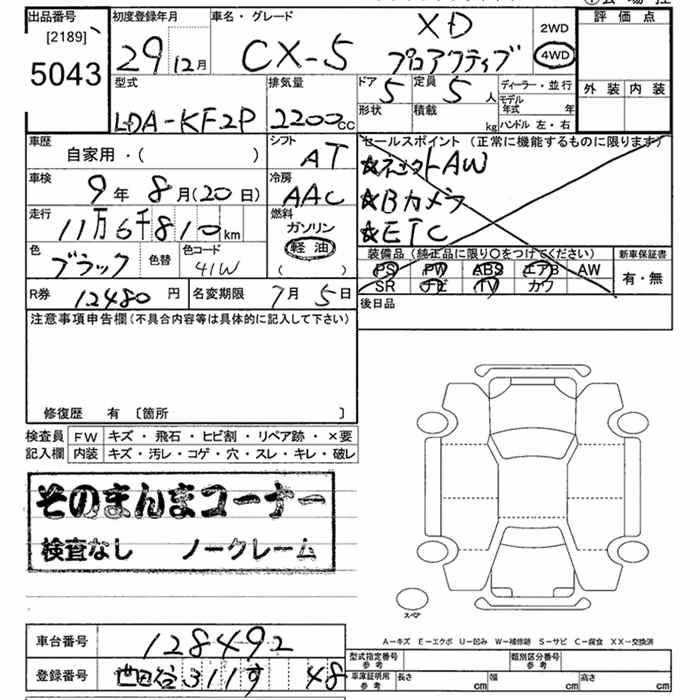 出品番号
[2189]
5043
初度登録年月
29 12月
車名・グレード
XD
CX-5 プロアクティブ
2WD
4WD
評価点
外装 内装
型式
LDA-KF2P
排気量
2200cc
ドア 5
定員 5人
形状
積載 kg
ディーラー・並行
モデル年式 年
ハンドル 左・右
車歴
自家用・( )
シフト
AT
車検
9年 8月(20日)
冷房
AAC
走行
11万6千810km
燃料
ガソリン
軽油
( )
色
ブラック
色替
色コード
41W
セールスポイント(正常に機能するものに限ります)
★ネットAW
★Bカメラ
★ETC
装備品(純正品に限り○をつけてください)
PS PW ABS エアB AW
SR ナビ TV カワ
新車保証書
有・無
R券 12480円
名変期限 7月5日
後日品
注意事項申告欄(不具合内容等は具体的に記入して下さい)
修復歴 有 〔箇所 〕
検査員 FW キズ・飛石・ヒビ割・リペア跡・×要
記入欄 内装 キズ・汚レ・コゲ・穴・スレ・キレ・破レ
そのまんまコーナー
検査なし ノークレーム
スペア
A-キズ E-エクボ U-凹み W-補修跡 S-サビ C-腐食 XX-交換済
車台番号 128492
登録番号 世田谷 311 す 48
型式指定番号 参考
類別区分番号 参考
車庫証明用 参考
長さ cm
幅 cm
高さ cm